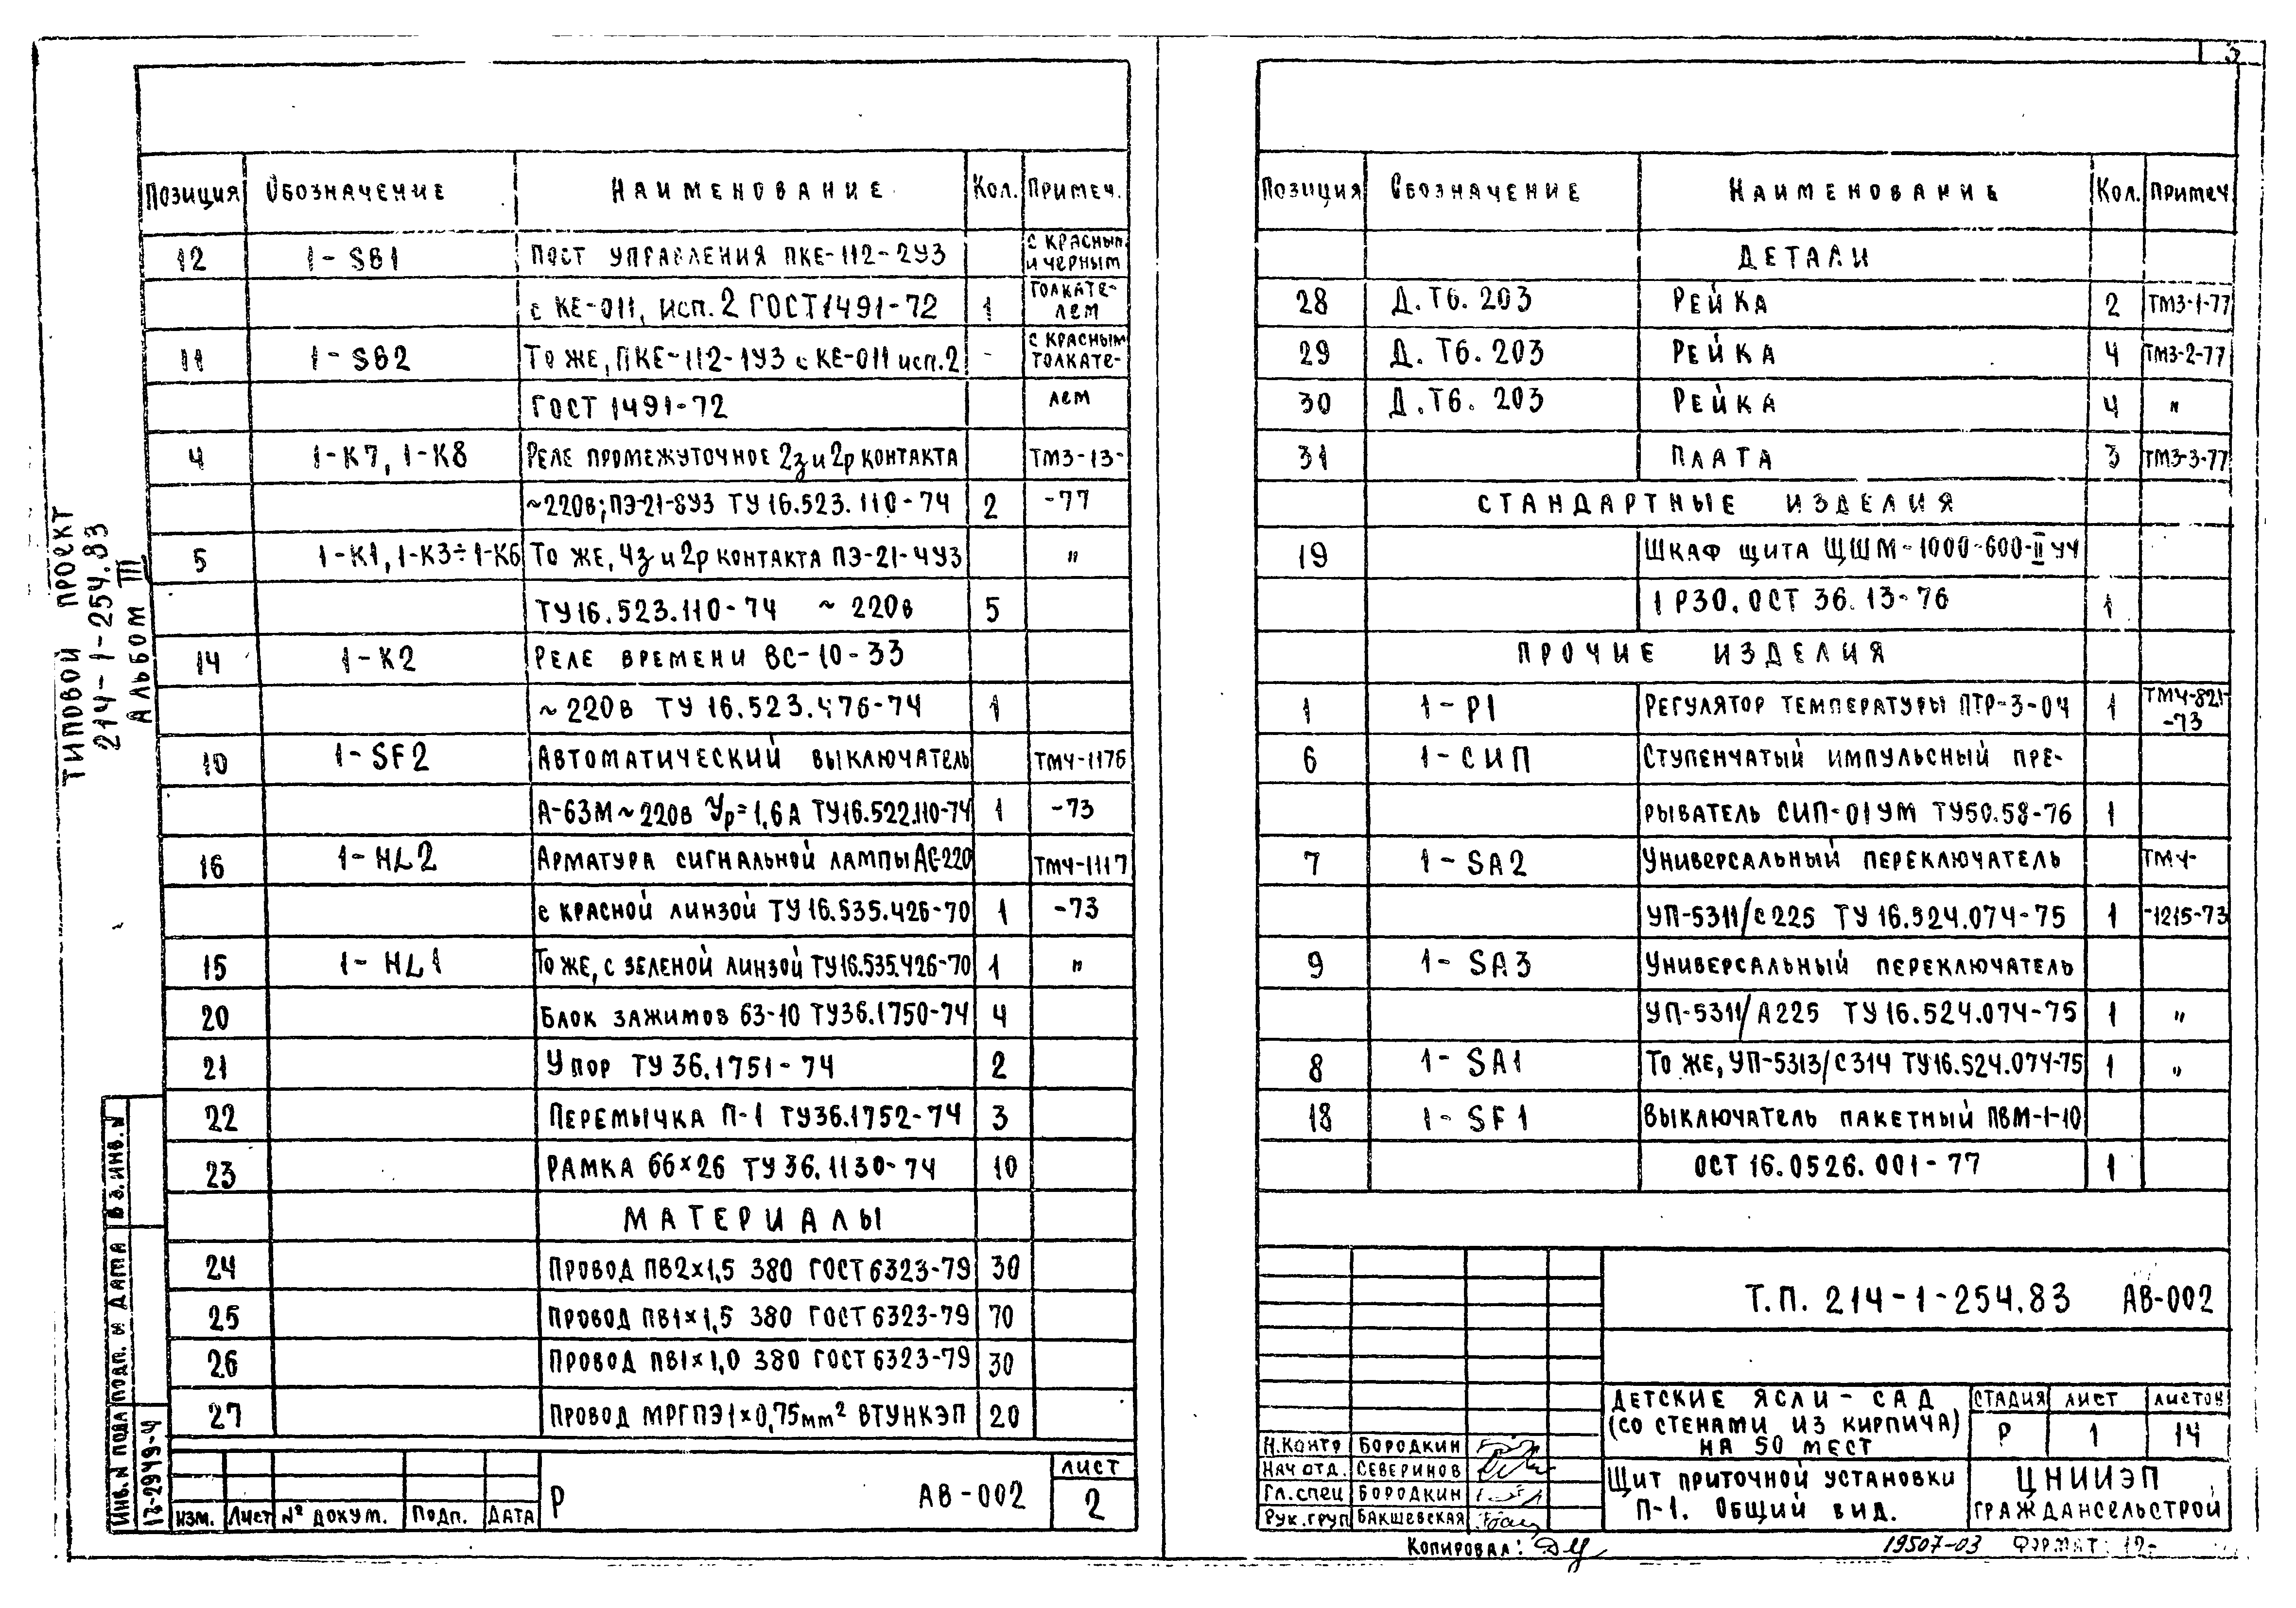 3
ТИПОВОЙ ПРОЕКТ
214-1-254.83
АЛЬБОМ III
ПОЗИЦИЯ ОБОЗНАЧЕНИЕ НАИМЕНОВАНИЕ КОЛ. ПРИМЕЧ.
12 1-SB1 ПОСТ УПРАВЛЕНИЯ ПКЕ-112-2У3 С КРАСНЫМ И ЧЕРНЫМ
с КЕ-011, исп. 2 ГОСТ 1491-72 1 ТОЛКАТЕ-ЛЕМ
11 1-SB2 ТО ЖЕ, ПКЕ-112-1У3 с КЕ-011 исп. 2 - С КРАСНЫМ ТОЛКАТЕ-
ГОСТ 1491-72 ЛЕМ
4 1-К7, 1-К8 РЕЛЕ ПРОМЕЖУТОЧНОЕ 2з и 2р КОНТАКТА ТМ3-13-
~220в; ПЭ-21-8У3 ТУ 16.523.110-74 2 -77
5 1-К1, 1-К3÷1-К6 ТО ЖЕ, 4з и 2р КОНТАКТА ПЭ-21-4У3 "
ТУ16.523.110-74 ~ 220в 5
14 1-К2 РЕЛЕ ВРЕМЕНИ ВС-10-33
~220в ТУ 16.523.476-74 1
10 1-SF2 АВТОМАТИЧЕСКИЙ ВЫКЛЮЧАТЕЛЬ ТМ4-1176
А-63М ~220в Ур=1,6А ТУ16.522.110-74 1 -73
16 1-HL2 АРМАТУРА СИГНАЛЬНОЙ ЛАМПЫ АС-220 ТМ4-1117
с КРАСНОЙ ЛИНЗОЙ ТУ 16.535.426-70 1 -73
15 1-HL1 ТО ЖЕ, С ЗЕЛЕНОЙ ЛИНЗОЙ ТУ16.535.426-70 1 "
20 БЛОК ЗАЖИМОВ БЗ-10 ТУ36.1750-74 4
21 УПОР ТУ 36.1751-74 2
22 ПЕРЕМЫЧКА П-1 ТУ36.1752-74 3
23 РАМКА 66×26 ТУ 36.1130-74 10
МАТЕРИАЛЫ
24 ПРОВОД ПВ2×1,5 380 ГОСТ 6323-79 30
25 ПРОВОД ПВ1×1,5 380 ГОСТ 6323-79 70
26 ПРОВОД ПВ1×1,0 380 ГОСТ 6323-79 30
27 ПРОВОД МРГПЭ1×0,75мм² ВТУНКЭП 20
ИНВ. N ПОДЛ ПОДП. И ДАТА ВЗ. ИНВ. N
12-2949-4
ИЗМ. ЛИСТ № ДОКУМ. ПОДП. ДАТА
Р АВ-002 ЛИСТ 2
ПОЗИЦИЯ ОБОЗНАЧЕНИЕ НАИМЕНОВАНИЕ КОЛ. ПРИМЕЧ
ДЕТАЛИ
28 Д.Т6.203 РЕЙКА 2 ТМ3-1-77
29 Д.Т6.203 РЕЙКА 4 ТМ3-2-77
30 Д.Т6.203 РЕЙКА 4 "
31 ПЛАТА 3 ТМ3-3-77
СТАНДАРТНЫЕ ИЗДЕЛИЯ
19 ШКАФ ЩИТА ЩШМ-1000-600-II У4
1Р30. ОСТ 36.13-76 1
ПРОЧИЕ ИЗДЕЛИЯ
1 1-Р1 РЕГУЛЯТОР ТЕМПЕРАТУРЫ ПТР-3-04 1 ТМ4-821-73
6 1-СИП СТУПЕНЧАТЫЙ ИМПУЛЬСНЫЙ ПРЕ-
РЫВАТЕЛЬ СИП-01УМ ТУ50.58-76 1
7 1-SA2 УНИВЕРСАЛЬНЫЙ ПЕРЕКЛЮЧАТЕЛЬ ТМ4-
УП-5311/С225 ТУ 16.524.074-75 1 -1215-73
9 1-SA3 УНИВЕРСАЛЬНЫЙ ПЕРЕКЛЮЧАТЕЛЬ
УП-5311/А225 ТУ 16.524.074-75 1 "
8 1-SA1 ТО ЖЕ, УП-5313/С314 ТУ16.524.074-75 1 "
18 1-SF1 ВЫКЛЮЧАТЕЛЬ ПАКЕТНЫЙ ПВМ-1-10
ОСТ 16.0526.001-77 1
Т.П. 214-1-254.83 АВ-002
ДЕТСКИЕ ЯСЛИ-САД
(СО СТЕНАМИ ИЗ КИРПИЧА)
НА 50 МЕСТ
СТАДИЯ ЛИСТ ЛИСТОВ
Р 1 14
Н.КОНТР БОРОДКИН
НАЧ ОТД. СЕВЕРИНОВ
ГЛ.СПЕЦ БОРОДКИН
РУК.ГРУП БАКШЕВСКАЯ
ЩИТ ПРИТОЧНОЙ УСТАНОВКИ
П-1. ОБЩИЙ ВИД.
ЦНИИЭП
ГРАЖДАНСЕЛЬСТРОЙ
КОПИРОВАЛ:
19507-03 ФОРМАТ: 12